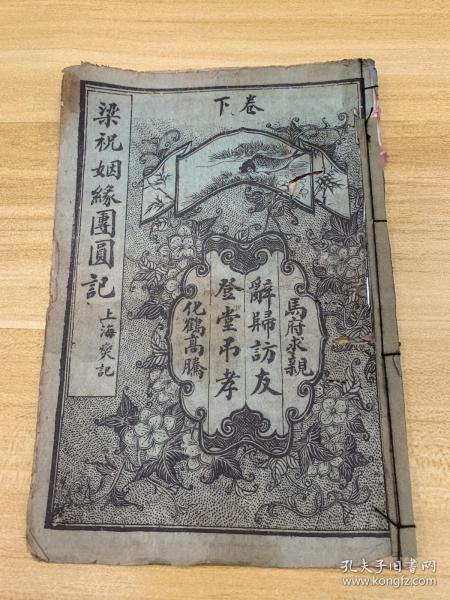 下卷
梁祝姻緣團圓記
上海燮記
馬府求親
辭歸訪友
登堂吊孝
化鶴高騰
孔夫子旧书网
www.kongfz.com